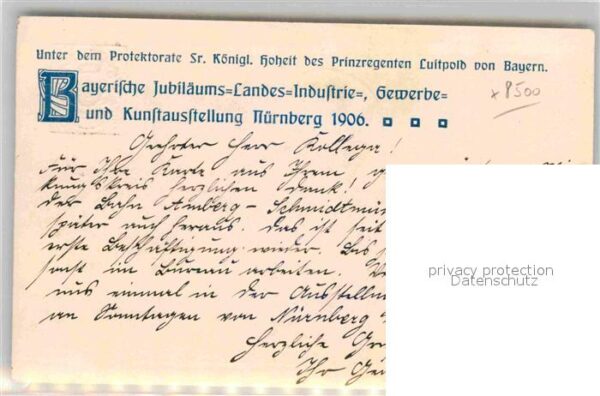 Unter dem Protektorate Sr. Königl. Hoheit des Prinzregenten Luitpold von Bayern.
Bayerische Jubiläums=Landes=Industrie=, Gewerbe=
und Kunstausstellung Nürnberg 1906.
x 8500
Geehrter Herr Kollega!
Für Ihre Karte aus Ihrem
kungskreis herzlichen Dank!
der Bahn Amberg - Schmidtmü
später auch heraus. Das ist seit
erste Beschäftigung wieder. Bis
sonst im Bureau arbeiten.
uns einmal in der Ausstellun
an Sonntagen von Nürnberg
Herzliche Grü
Ihr
privacy protection
Datenschutz